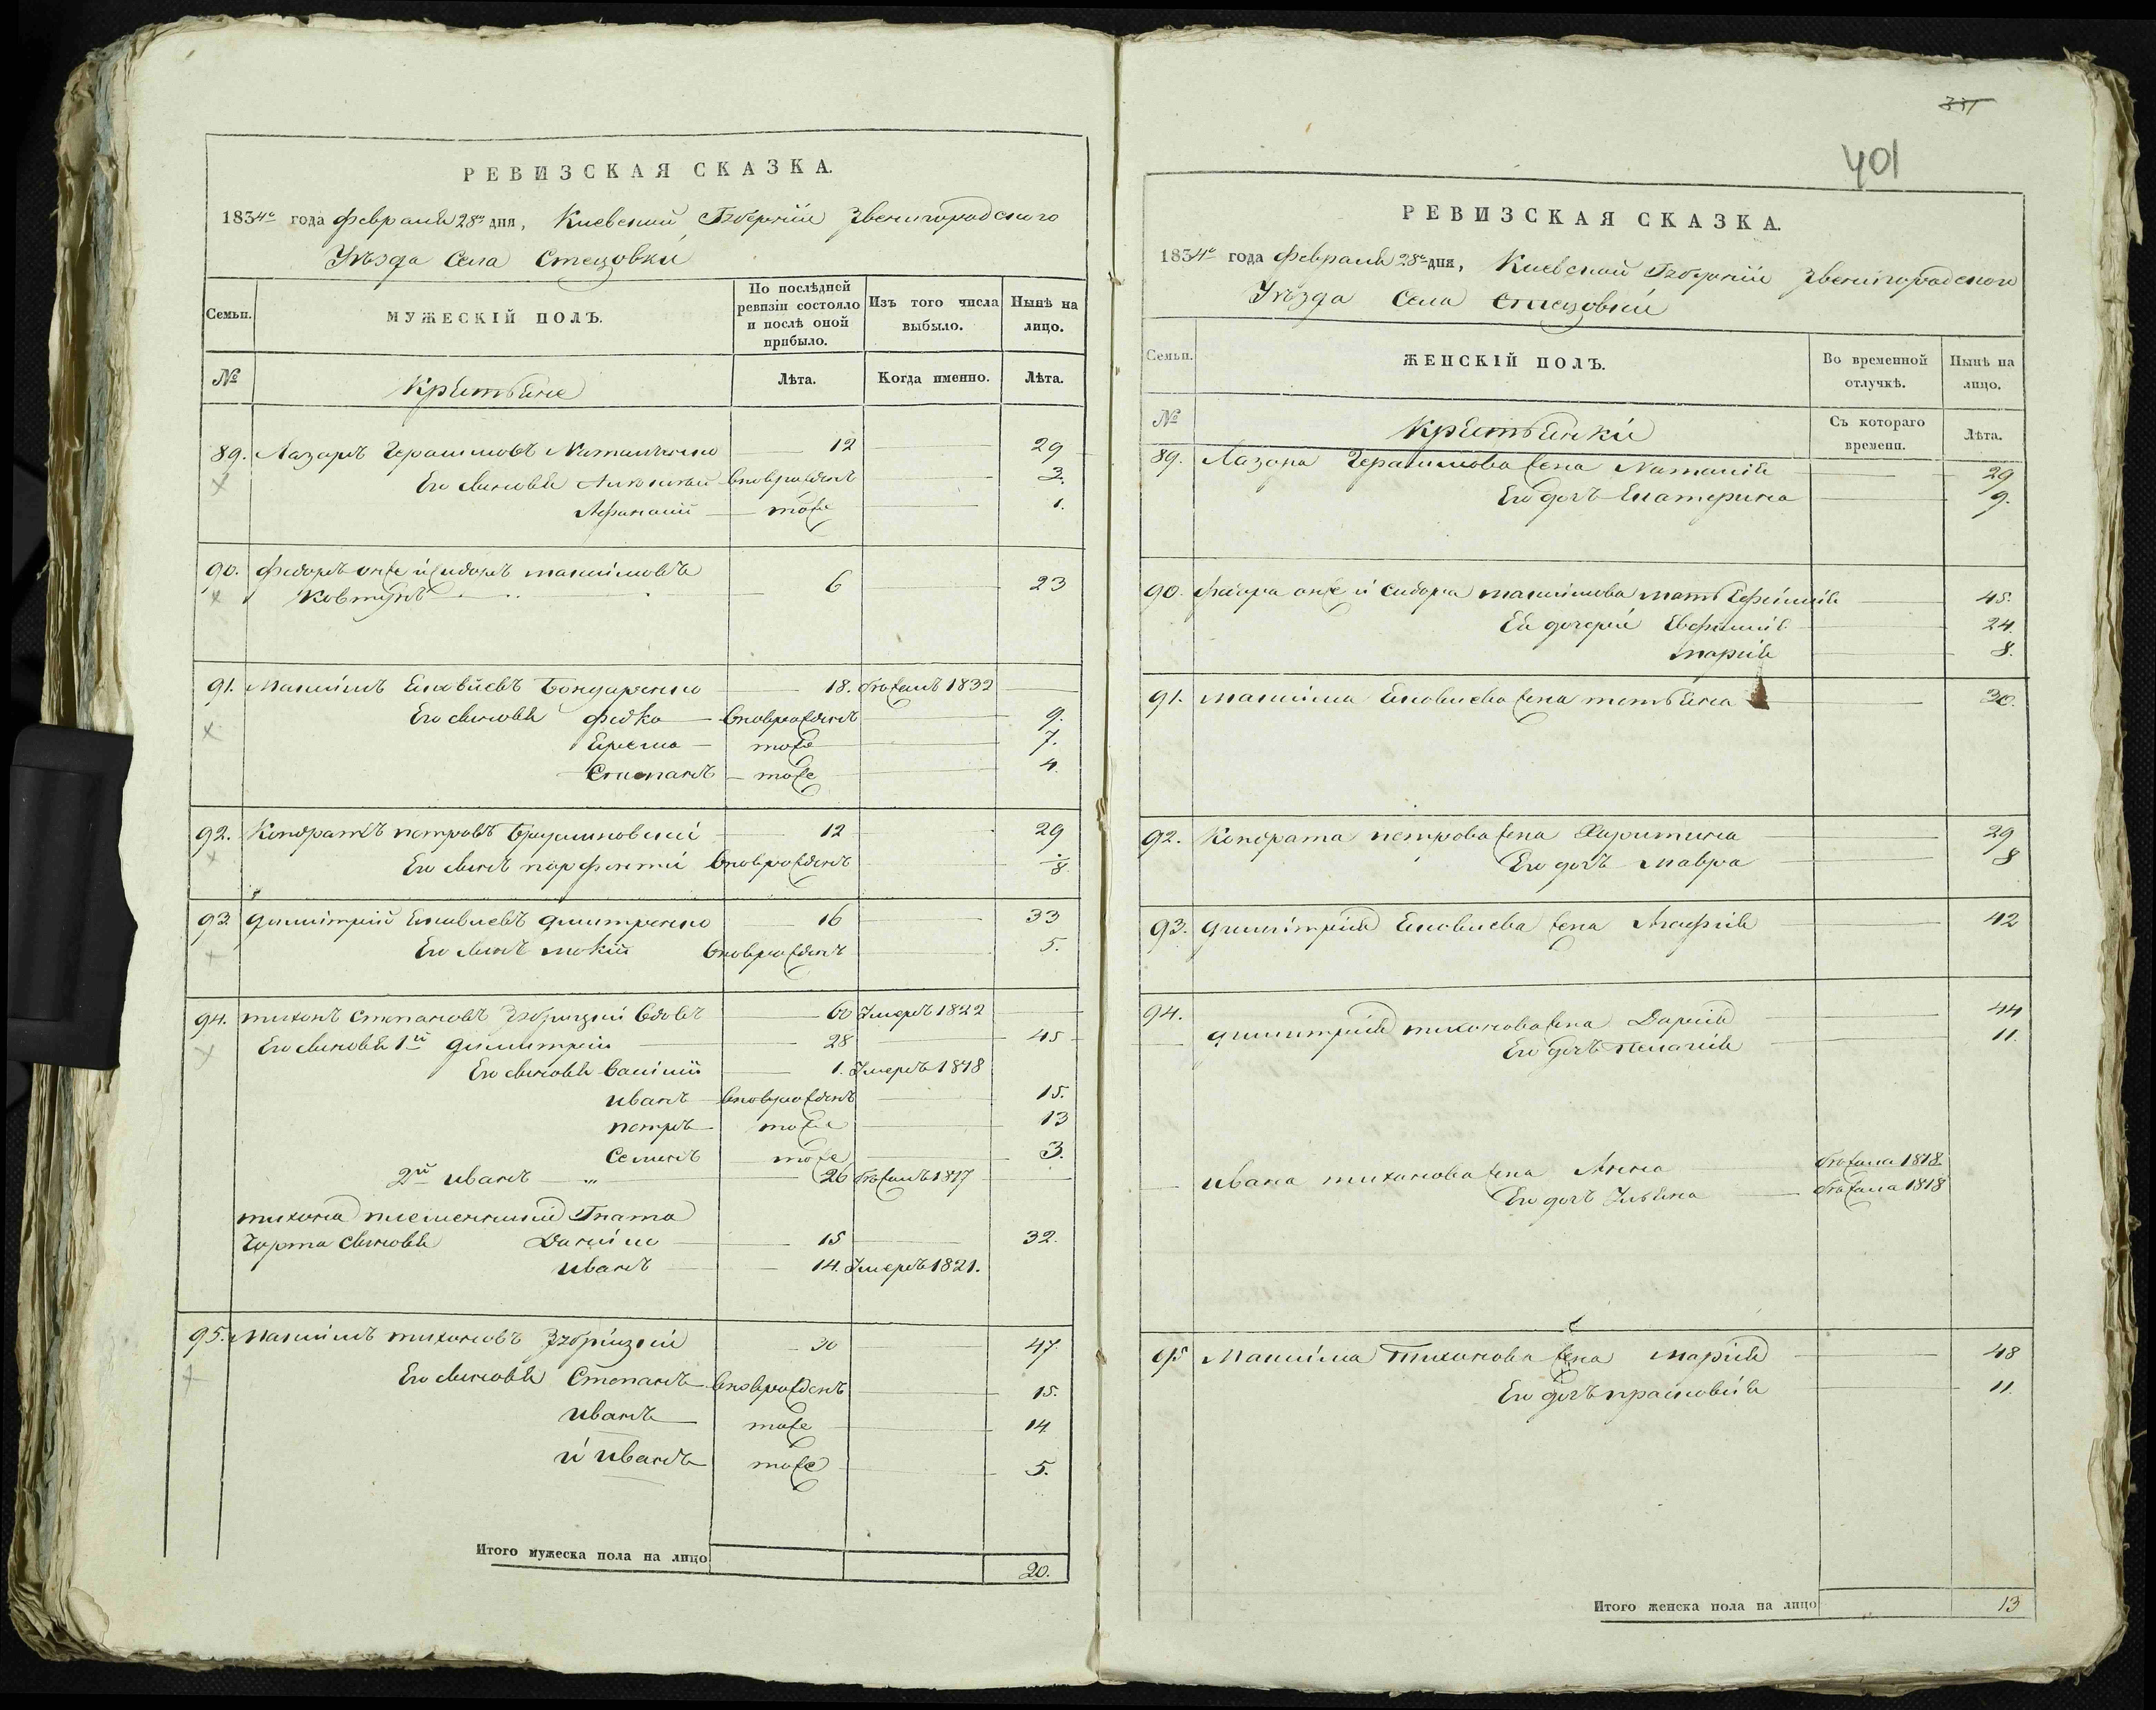 РЕВИЗСКАЯ СКАЗКА.
1834го года февраля 28го дня, Киевской Губерніи Звенигородского
Уѣзда Села Стецовки
Семьи.
МУЖЕСКІЙ ПОЛЪ.
По послѣдней ревизіи состояло и послѣ оной прибыло.
Изъ того числа выбыло.
Нынѣ на лицо.
№
Крестьяне
Лѣта.
Когда именно.
Лѣта.
89. Лазаръ Герасимовъ 12 29
Его сыновья новорожденъ 3.
Афанасій тоже 1.
90. Федоръ онже и Сидоръ Максимовъ
Ковтунъ 6 23
91. Максимъ Яковлевъ Бондаренко 18. 1832
Его сыновья Федко новорожденъ 9.
Ярема тоже 7.
Степанъ тоже 4.
92. Кондратъ Петровъ 12 29
Его сынъ Парфентій новорожденъ 8
93. Димитрій Яковлевъ Дмитренко 16 33
Его сынъ Мокій новорожденъ 5.
94. Тихонъ Степановъ Збрицкій вдовъ 60 Умеръ 1822
Его сыновья 1й Димитрій 28 45
Его сыновья Василій 1. Умеръ 1818
Иванъ новорожденъ 15.
Петръ тоже 13
Семенъ тоже 3.
2й Иванъ 26 1817
Тихона племенники Гната
сыновья Данило 15 32.
Иванъ 14. Умеръ 1821.
95. Максимъ Тихоновъ Збрицкій 30 47
Его сыновья Степанъ новорожденъ 15.
Иванъ тоже 14
и Иванъ тоже 5.
Итого мужеска пола на лицо 20.
331
401
РЕВИЗСКАЯ СКАЗКА.
1834го года февраля 28го дня, Киевской Губерніи Звенигородского
Уѣзда Села Стецовки
Семьи.
ЖЕНСКІЙ ПОЛЪ.
Во временной отлучкѣ.
Нынѣ на лицо.
№
Крестьянки
Съ котораго времени.
Лѣта.
89. Лазора Герасимова жена Наталія 29
Его дочь Екатерина 9.
90. онже и Сидора Максимова мать 45.
Ея дочери Евфимія 24.
Марія 8.
91. Максима Яковлева жена Тетьяна 30.
92. Кондрата Петрова жена Харитина 29
Его дочь Мавра 8
93. Димитрія Яковлева жена Агафія 42
94. Димитрія Тихонова жена Дарія 44
Его дочь Пелагія 11.
Ивана Тихонова жена Анна 1818.
Его дочь Ульяна 1818
95 Максима Тихонова жена Марія 48
Его дочь Прасковія 11.
Итого женска пола на лицо 13